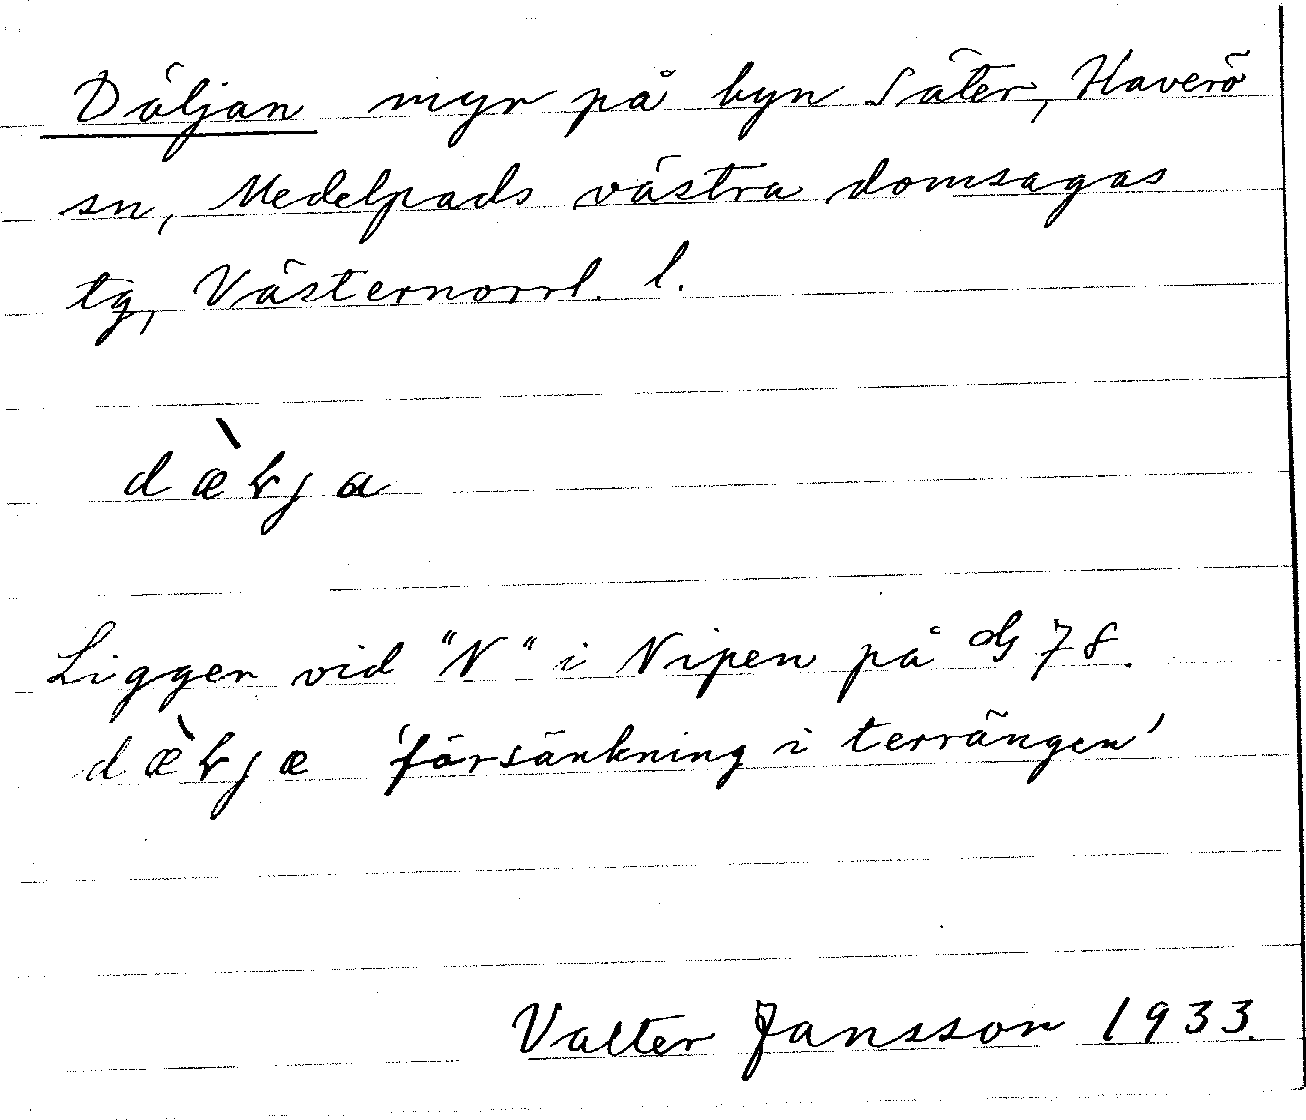 Däljan myr på byn Säter, Haverö
sn, Medelpads västra domsagas
tg, Västernorrl. l.
dæ̀ɽja
Ligger vid "N" i Nipen på G 78.
dæ̀ɽjæ 'försänkning i terrängen'
Valter Jansson 1933.